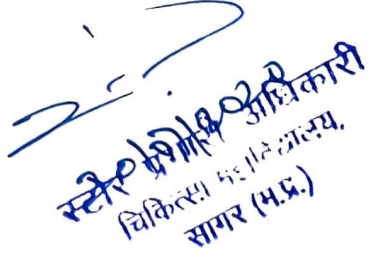 स्टोर प्रभारी अधिकारी
चिकित्सा महाविद्यालय,
सागर (म.प्र.)